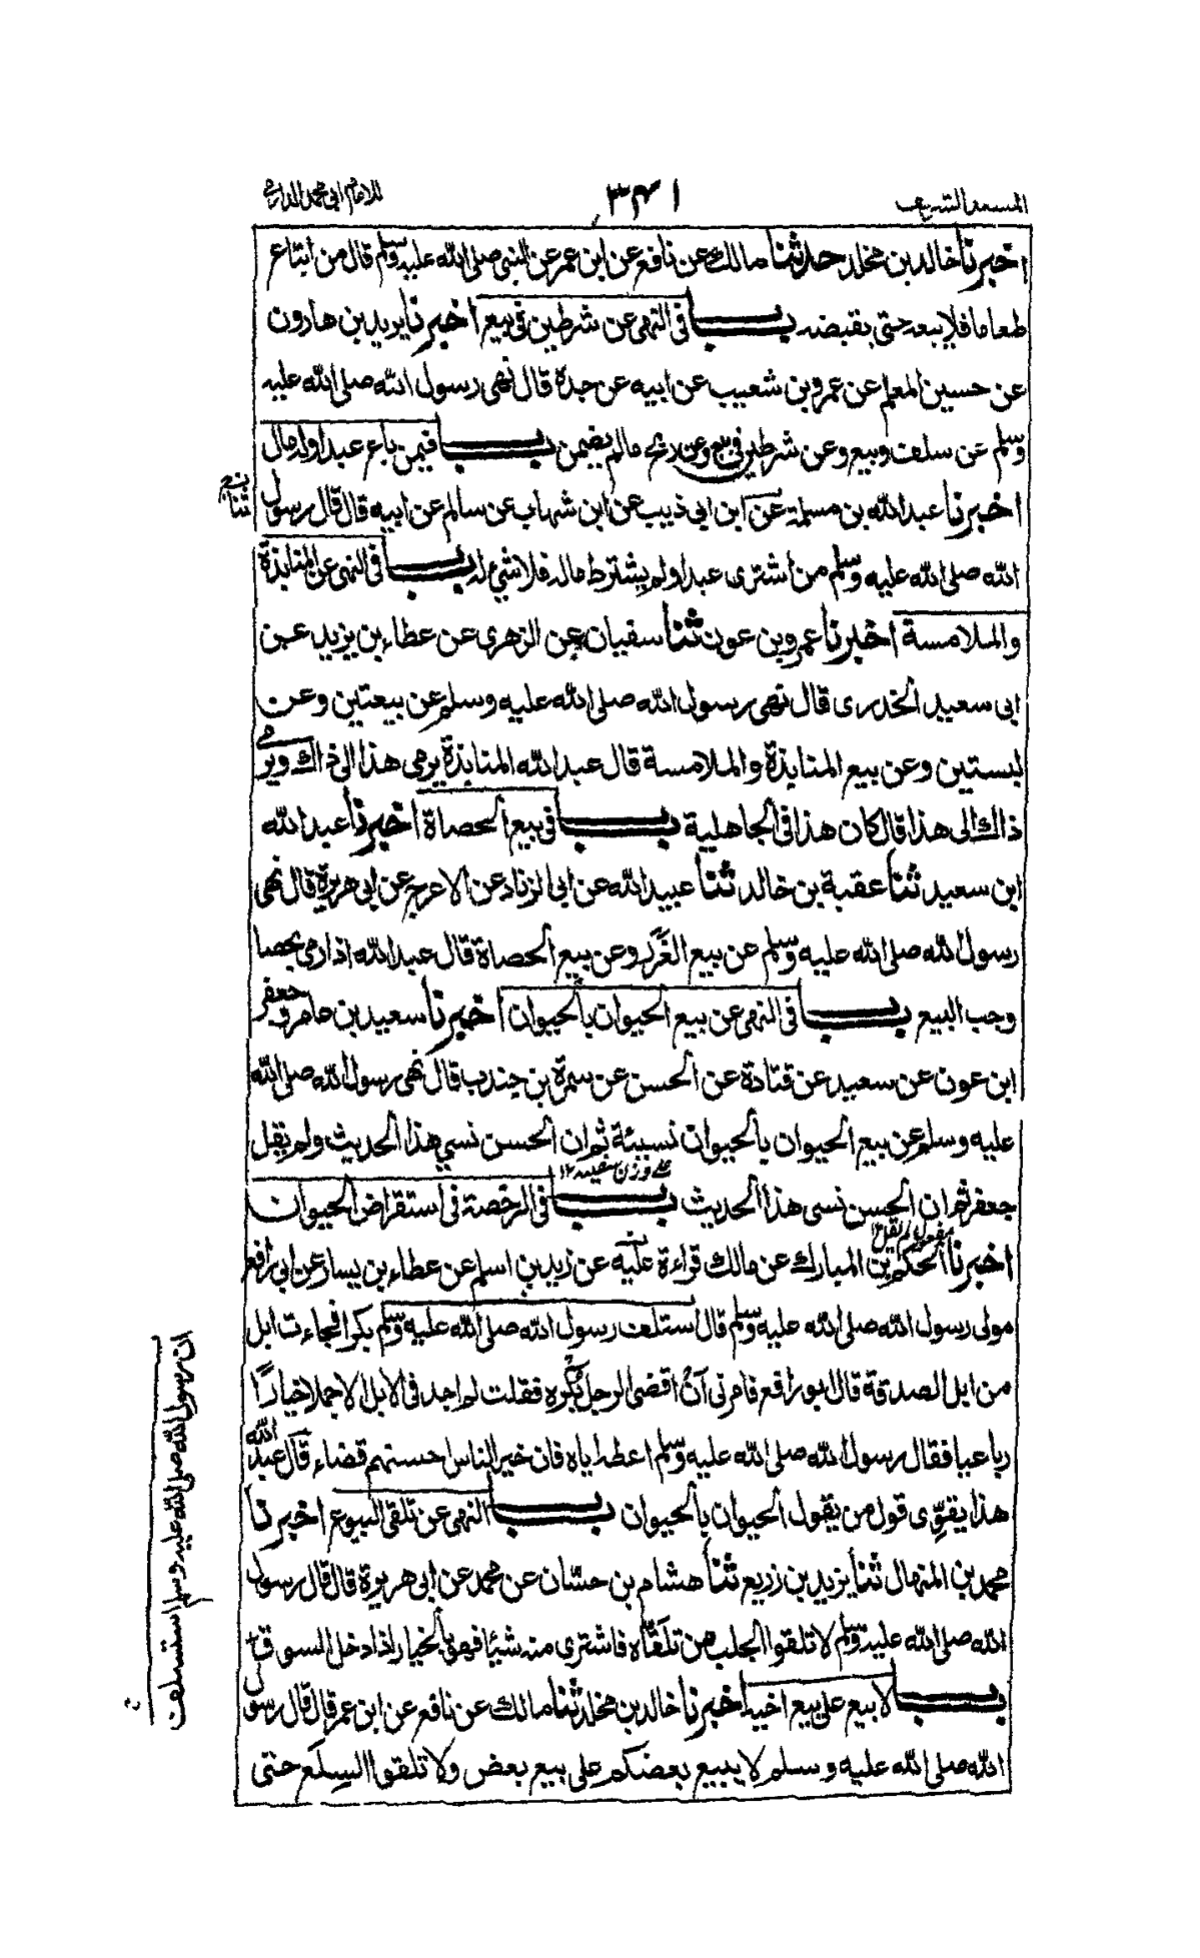 المسند الشريف
٣٤١
للامام ابي محمد الدارمي
اخبرنا خالد بن مخلد حدثنا مالك عن نافع عن ابن عمر عن النبى صلى الله عليه وسلم قال من ابتاع
طعاما فلا يبعه حتى يقبضه باب فى النهى عن شرطين فى بيع اخبرنا يزيد بن هارون
عن حسين المعلم عن عمرو بن شعيب عن ابيه عن جده قال نهى رسول الله صلى الله عليه
وسلم عن سلف وبيع وعن شرطين فى بيع وعن ربح مالم يضمن باب فيمن باع عبدا وله مال
اخبرنا عبد الله بن مسلمة عن ابن ابى ذيب عن ابن شهاب عن سالم عن ابيه قال قال رسول
ثنا
الله صلى الله عليه وسلم من اشترى عبدا ولم يشترط ماله فلا شيء له باب فى النهى عن المنابذة
والملامسة اخبرنا عمرو بن عون ثنا سفيان عن الزهرى عن عطاء بن يزيد عن
ابى سعيد الخدرى قال نهى رسول الله صلى الله عليه وسلم عن بيعتين وعن
لبستين وعن بيع المنابذة والملامسة قال عبد الله المنابذة يرمى هذا الى ذاك ويرمى
ذاك الى هذا قال كان هذا فى الجاهلية باب فى بيع الحصاة اخبرنا عبد الله
ابن سعيد ثنا عقبة بن خالد ثنا عبيد الله عن ابى الزناد عن الاعرج عن ابى هريرة قال نهى
رسول الله صلى الله عليه وسلم عن بيع الغَرَر وعن بيع الحصاة قال عبد الله اذا رمى بحصا
وجب البيع باب فى النهى عن بيع الحيوان بالحيوان اخبرنا سعيد بن عامر وجعفر
ابن عون عن سعيد عن قتادة عن الحسن عن سمرة بن جندب قال نهى رسول الله صلى الله
عليه وسلم عن بيع الحيوان بالحيوان نسيئة ثم ان الحسن نسي هذا الحديث ولم يقل
على وزن سفينه ١٢
جعفر ثم ان الحسن نسى هذا الحديث باب فى الرخصة فى استقراض الحيوان
مفعول لم يقل
اخبرنا الحكم بن المبارك عن مالك قراءة عليه عن زيد بن اسلم عن عطاء بن يسار عن ابى رافع
مولى رسول الله صلى الله عليه وسلم قال استلف رسول الله صلى الله عليه وسلم بكرا فجاءت ابل
ان رسول الله صلى الله عليه وسلم استسلف
من ابل الصدقة قال ابو رافع فامرنى أن اقضى الرجل بكره فقلت لم اجد فى الابل الا جملا خيارًا
رباعيا فقال رسول الله صلى الله عليه وسلم اعطه اياه فان خير الناس احسنهم قضاء قال عبد الله
هذا يقوِّى قول من يقول الحيوان بالحيوان باب النهى عن تلقى البيوع اخبرنا
محمد بن المنهال ثنا يزيد بن زريع ثنا هشام بن حسّان عن محمد عن ابى هريرة قال قال رسول
الله صلى الله عليه وسلم لا تلقوا الجلب من تلقّاه فاشترى منه شيئا فهو بالخيار اذا دخل السوق
باب لا يبيع على بيع اخيه اخبرنا خالد بن مخلد ثنا مالك عن نافع عن ابن عمر قال قال رسول
الله صلى الله عليه وسلم لا يبيع بعضكم على بيع بعض ولا تلقوا السِلَع حتى